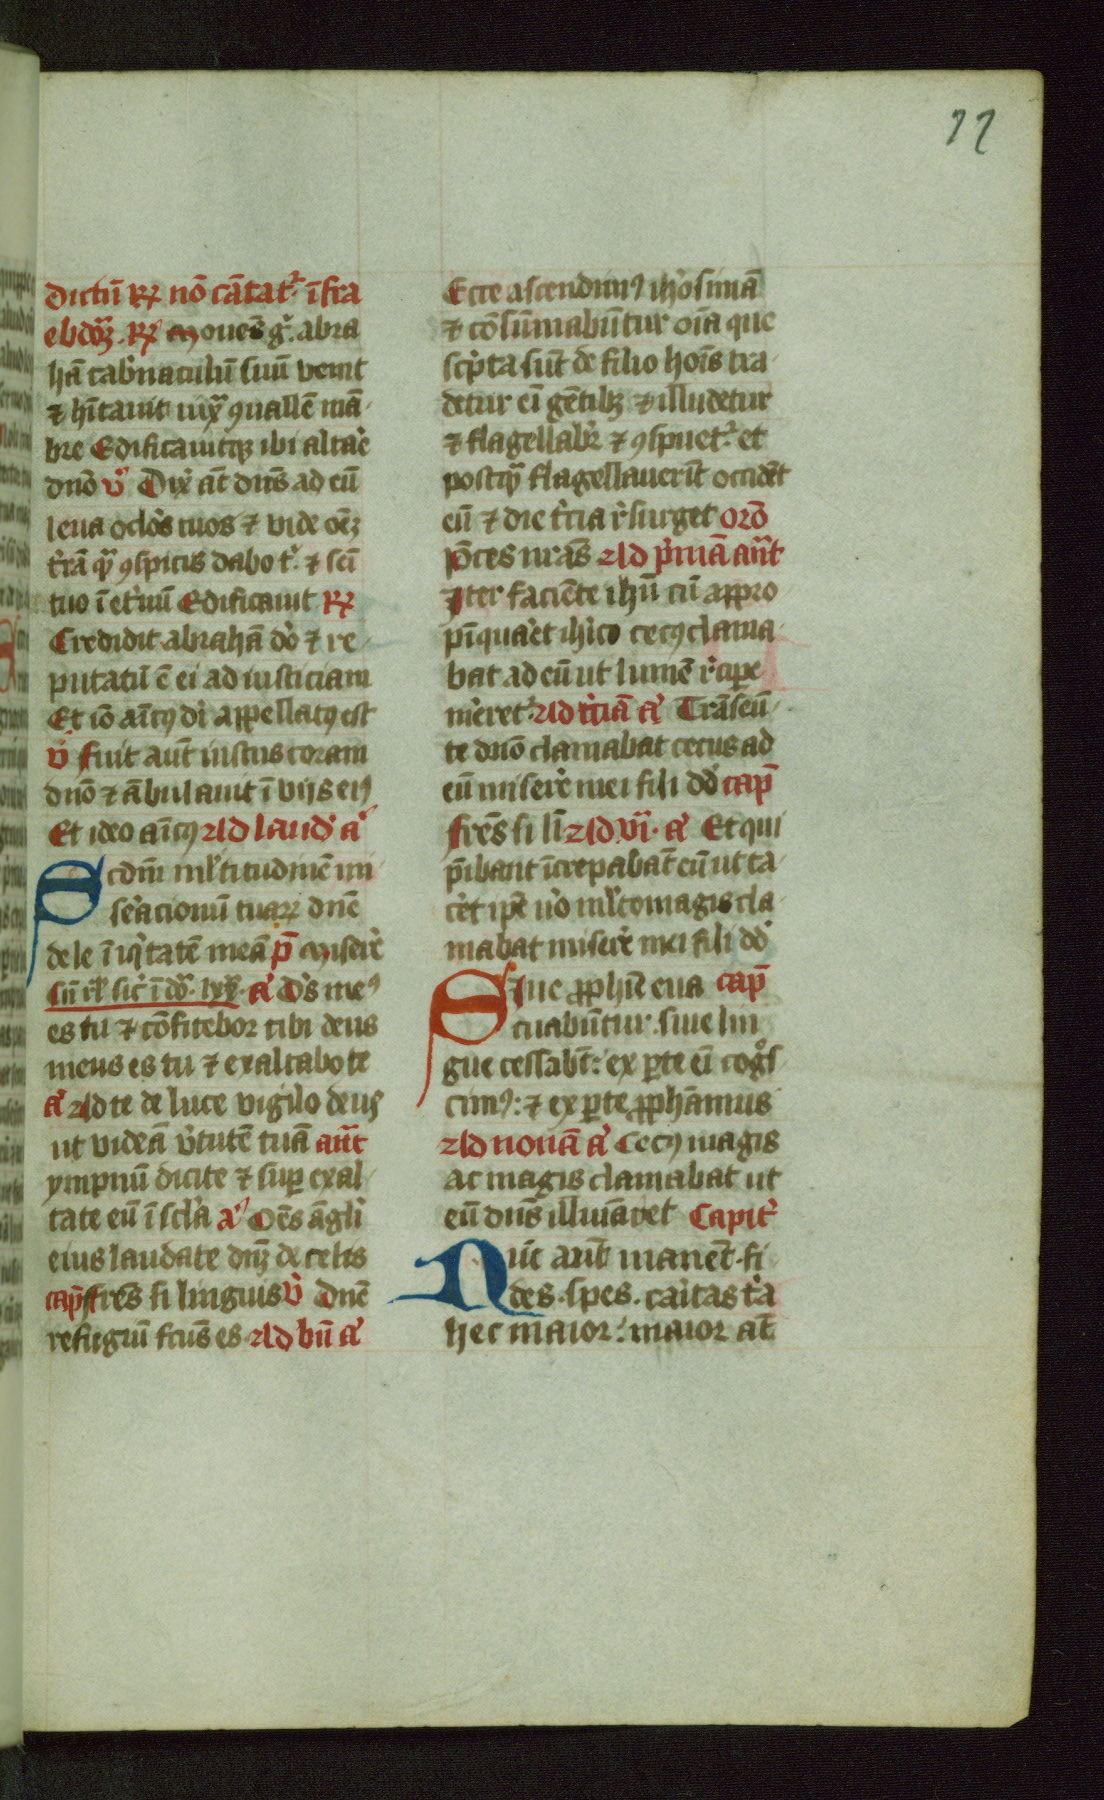 22
dictū R̸ nō cātatʳ īfra
ebdōȝ. R̸ Mouēs gͥ abra
hā tab'naculū suū venit
⁊ hītauit iuxͣ ꝯuallē mā
bre Edificauitqȝ ibi altaē
dnō v̊ Dix̓ āt dn̄s ad eū
leua oclōs tuos ⁊ vide oēȝ
t̓rā qͣ ꝯspicis dabo tͥ ⁊ sēī
tuo ī et̓nū Edificauit R̸
Credidit abrahā dō ⁊ re
putatū ē ei ad iusticiam
Et iō aīcꝯ dī appellatꝯ est
v̊ fuit aut̄ iustus coram
dnō ⁊ ābulauit ī vijs eiꝯ
Et ideo aīcꝯ Ad laud' a'
Scdm̄ ml̓titudinē mi
se̓acionū tuaꝝ dn̄e
dele īiq̓tatē meā p̄ Miser̄e
a' Ds̄ meꝯ
es tu ⁊ cōfitebor tibi deus
meus es tu ⁊ exaltabo te
a' Ad te de luce vigilo deus
ut videā v̓tutē tuā ant̄
ympnū dicite ⁊ suꝑ exal
tate eū ī scl̓a a' Oēs āgli
eius laudate dnȝ de celis
cap̄ frēs si linguis v̊ Dn̄e
refugiū fcūs es Ad bn̄ a'
Ecce ascendimꝯ ih̓osimā
⁊ cōsūmabūtur oīa que
sc̓pta sūt de filio hoīs tra
detur eī gētibȝ ⁊ illudetur
⁊ flagellabr̄ ⁊ ꝯspuetʳ et
postqͣ flagellauerīt occidēt
eū ⁊ die t̓cia r̓surget orō
P̄ces nrās Ad p̓mā ant̄
Iter faciēte ihū cū appro
pīqua̓et ih̓ico cecꝯ clama
bat ad eū ut lumē r̓cipe
m̓eretʳ Ad t̓ciā a' Trāseū
te dnō clamabat cecus ad
eū miser̄e mei fili dd̓ cap̄
frēs si lī Ad vī a' Et qui
p̄ibant īcrepabāt eū ut ta
c̓et ip̄e v̓o ml̓tomagis cla
mabat miser̄e mei fili dd̓
Siue ꝓph̓ie eua cap̄
cuabūtur siue lin
gue cessabt̄: ex ꝑte eī cog̊s
cimꝯ: ⁊ ex ꝑte ꝓphāmus
Ad nonā a' Cecꝯ magis
ac magis clamabat ut
eū dn̄s illuīaret Capitʳ
Nūc aut̄ manēt fi
des. spes. caītas t̓a
hec maior: maior āt